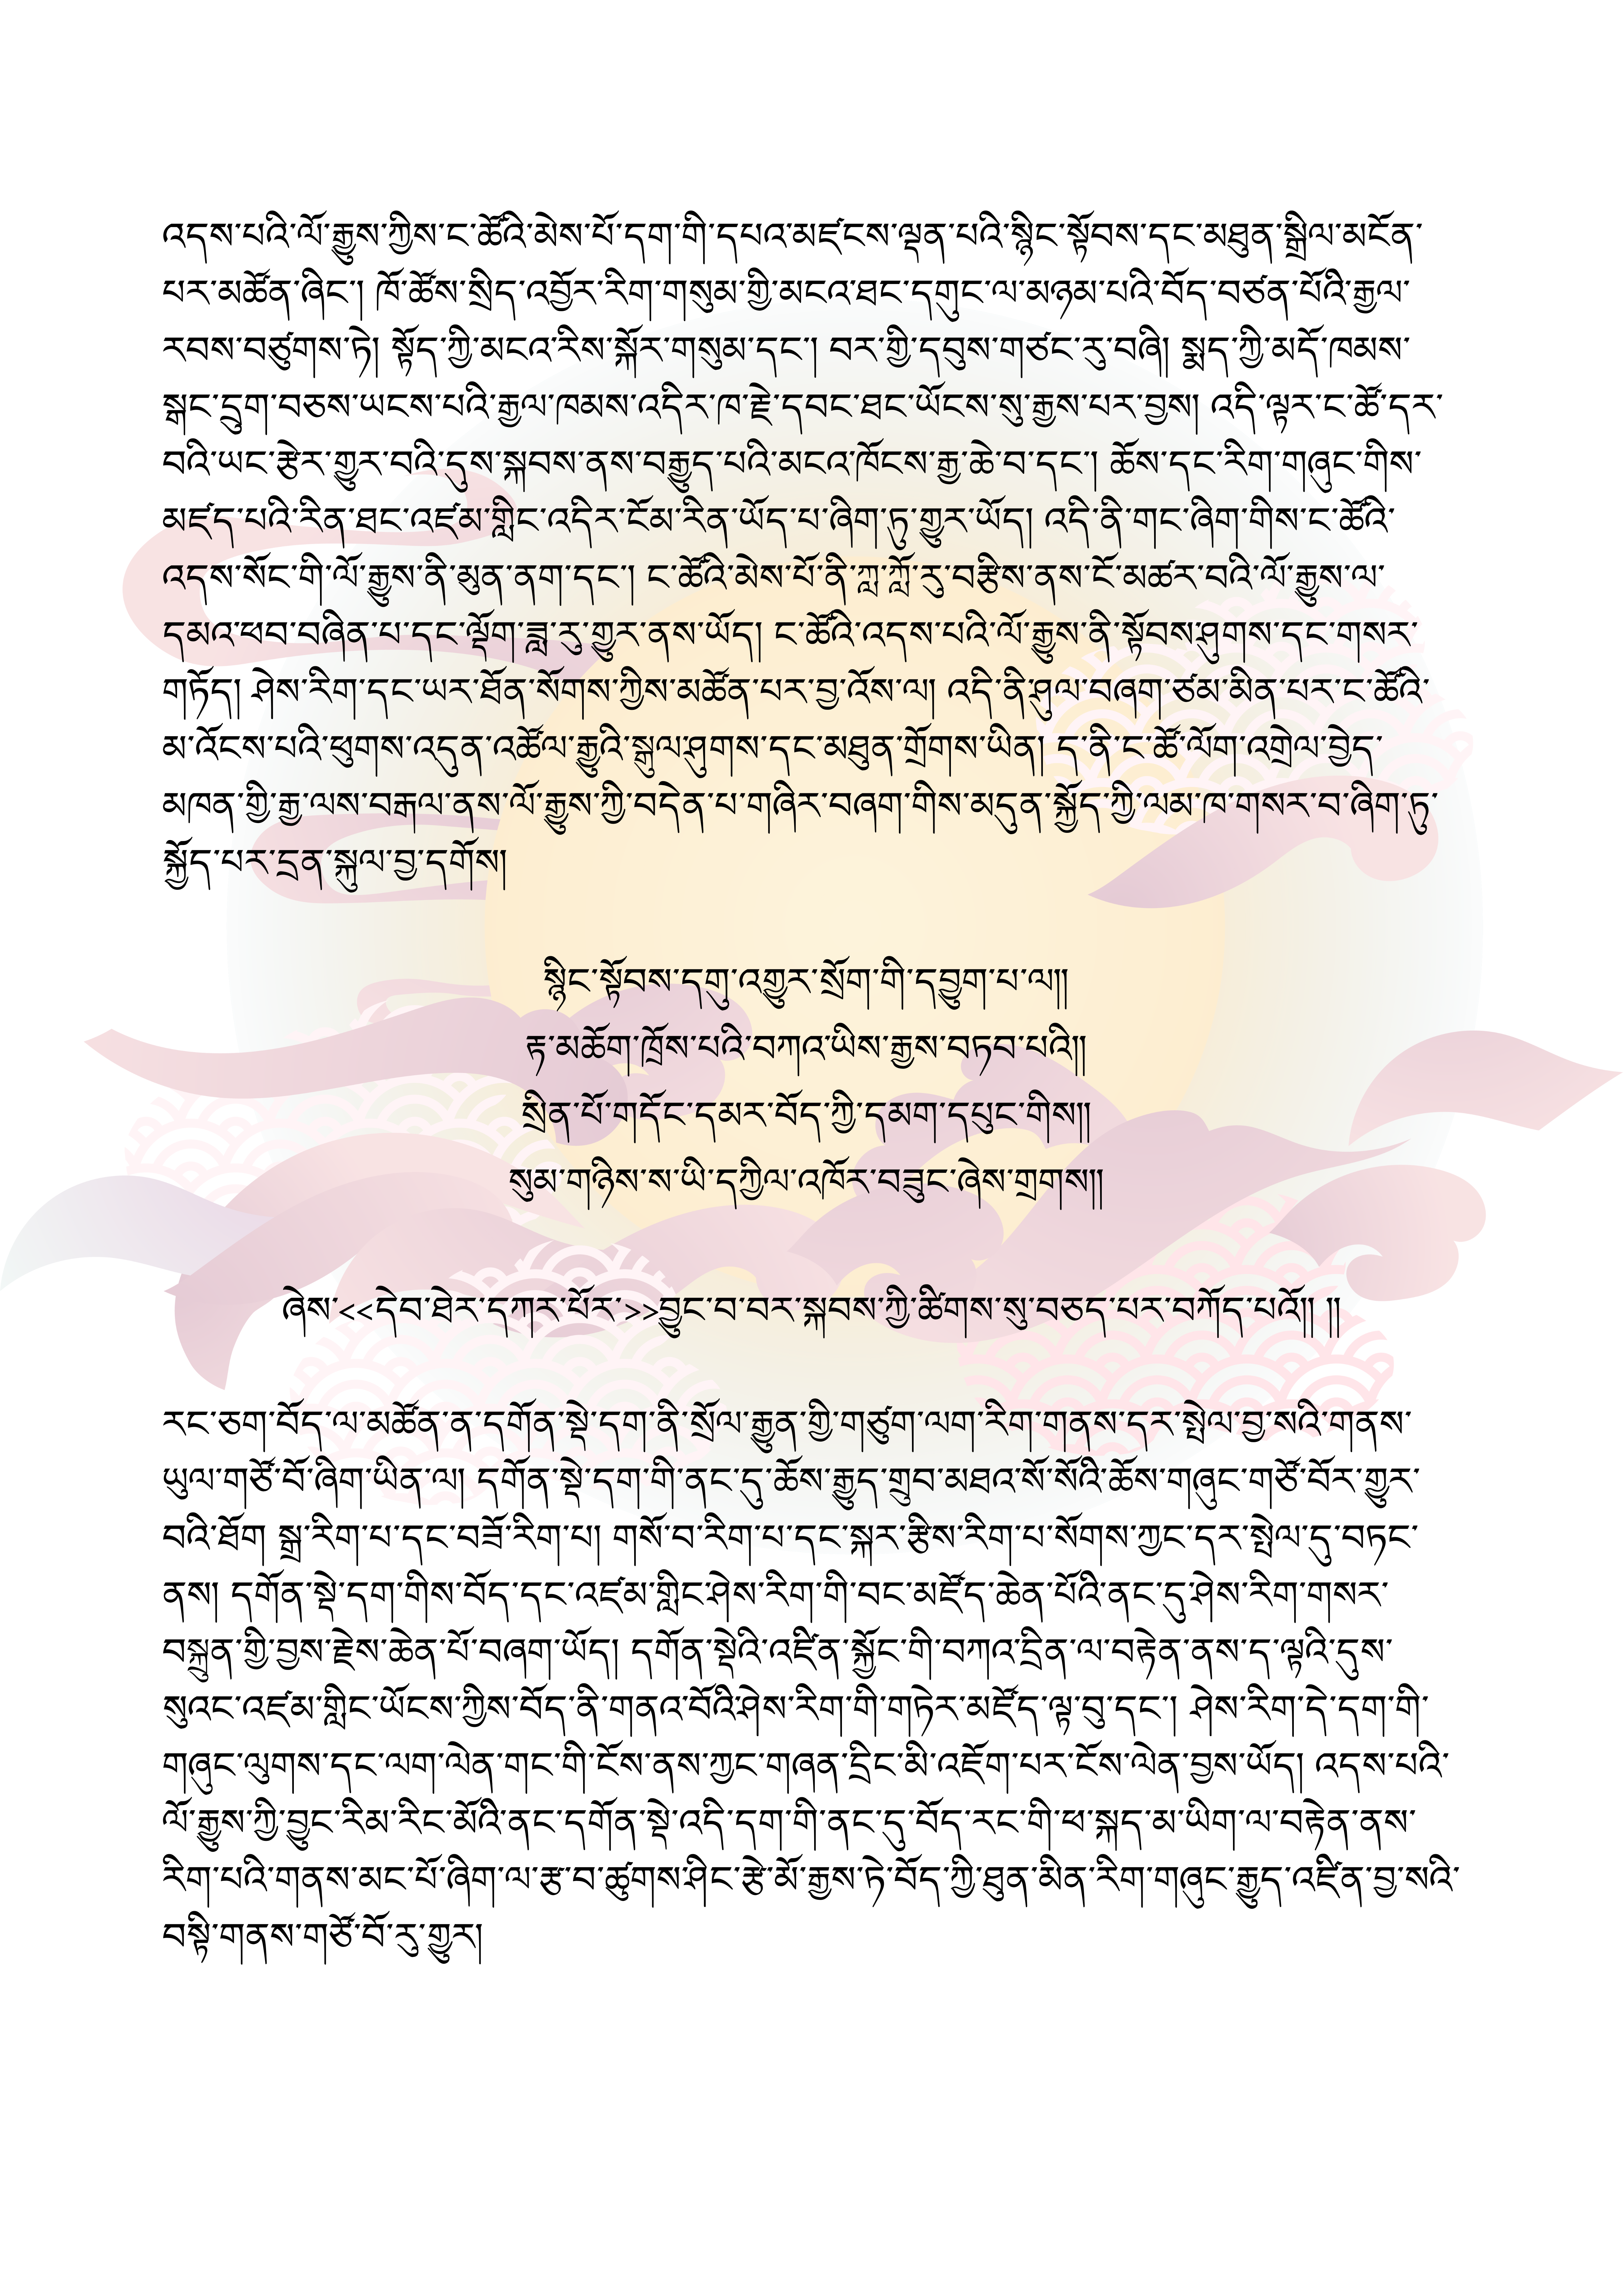 འདས་པའི་ལོ་རྒྱུས་ཀྱིས་ང་ཚོའི་མེས་པོ་དག་གི་དཔའ་མཛངས་ལྡན་པའི་སྙིང་སྟོབས་དང་མཐུན་སྒྲིལ་མངོན་
པར་མཚོན་ཞིང་། ཁོ་ཚོས་སྲིད་འབྱོར་རིག་གསུམ་གྱི་མངའ་ཐང་དགུང་ལ་མཉམ་པའི་བོད་བཙན་པོའི་རྒྱལ་
རབས་བཙུགས་ཏེ། སྟོད་ཀྱི་མངའ་རིས་སྐོར་གསུམ་དང་། བར་གྱི་དབུས་གཙང་རུ་བཞི། སྨད་ཀྱི་མདོ་ཁམས་
སྒང་དྲུག་བཅས་ཡངས་པའི་རྒྱལ་ཁམས་འདིར་ཁ་རྗེ་དབང་ཐང་ཡོངས་སུ་རྒྱས་པར་བྱས། འདི་ལྟར་ང་ཚོ་དར་
བའི་ཡང་རྩེར་གྱུར་བའི་དུས་སྐབས་ནས་བརྒྱུད་པའི་མངའ་ཁོངས་རྒྱ་ཆེ་བ་དང་། ཆོས་དང་རིག་གཞུང་གིས་
མཛད་པའི་རིན་ཐང་འཛམ་གླིང་འདིར་ངོམ་རིན་ཡོད་པ་ཞིག་ཏུ་གྱུར་ཡོད། འདི་ནི་གང་ཞིག་གིས་ང་ཚོའི་
འདས་སོང་གི་ལོ་རྒྱུས་ནི་མུན་ནག་དང་། ང་ཚོའི་མེས་པོ་ནི་ཀླ་ཀློ་རུ་བརྩིས་ནས་ངོ་མཚར་བའི་ལོ་རྒྱུས་ལ་
དམའ་ཕབ་བཞིན་པ་དང་ལྡོག་ཟླ་རུ་གྱུར་ནས་ཡོད། ང་ཚོའི་འདས་པའི་ལོ་རྒྱུས་ནི་སྟོབས་ཤུགས་དང་གསར་
གཏོད། ཤེས་རིག་དང་ཡར་ཐོན་སོགས་ཀྱིས་མཚོན་པར་བྱ་འོས་ལ། འདི་ནི་ཤུལ་བཞག་ཙམ་མིན་པར་ང་ཚོའི་
མ་འོངས་པའི་ཕུགས་འདུན་འཚོལ་རྒྱུའི་སྒུལ་ཤུགས་དང་མཐུན་གྲོགས་ཡིན། ད་ནི་ང་ཚོ་ལོག་འགྲེལ་བྱེད་
མཁན་གྱི་རྒྱ་ལས་བརྒལ་ནས་ལོ་རྒྱུས་ཀྱི་བདེན་པ་གཞིར་བཞག་གིས་མདུན་སྐྱོད་ཀྱི་ལམ་ཁ་གསར་བ་ཞིག་ཏུ་
སྐྱོད་པར་དྲན་སྐུལ་བྱ་དགོས།
སྙིང་སྟོབས་དགུ་འགྱུར་སྲོག་གི་དབྱུག་པ་ལ།།
རྟ་མཆོག་ཁྲོས་པའི་བཀའ་ཡིས་རྒྱས་བཏབ་པའི།།
སྲིན་པོ་གདོང་དམར་བོད་ཀྱི་དམག་དཔུང་གིས།།
སུམ་གཉིས་ས་ཡི་དཀྱིལ་འཁོར་བཟུང་ཞེས་གྲགས།།
ཞེས་<<དེབ་ཐེར་དཀར་པོར་>>བྱུང་བ་བར་སྐབས་ཀྱི་ཚིགས་སུ་བཅད་པར་བཀོད་པའོ།། །།
རང་ཅག་བོད་ལ་མཚོན་ན་དགོན་སྡེ་དག་ནི་སྲོལ་རྒྱུན་གྱི་གཙུག་ལག་རིག་གནས་དར་སྤེལ་བྱ་སའི་གནས་
ཡུལ་གཙོ་བོ་ཞིག་ཡིན་ལ། དགོན་སྡེ་དག་གི་ནང་དུ་ཆོས་རྒྱུད་གྲུབ་མཐའ་སོ་སོའི་ཆོས་གཞུང་གཙོ་བོར་གྱུར་
བའི་ཐོག སྒྲ་རིག་པ་དང་བཟོ་རིག་པ། གསོ་བ་རིག་པ་དང་སྐར་རྩིས་རིག་པ་སོགས་ཀྱང་དར་སྤེལ་དུ་བཏང་
ནས། དགོན་སྡེ་དག་གིས་བོད་དང་འཛམ་གླིང་ཤེས་རིག་གི་བང་མཛོད་ཆེན་པོའི་ནང་དུ་ཤེས་རིག་གསར་
བསྐྲུན་གྱི་བྱས་རྗེས་ཆེན་པོ་བཞག་ཡོད། དགོན་སྡེའི་འཛིན་སྐྱོང་གི་བཀའ་དྲིན་ལ་བརྟེན་ནས་ད་ལྟའི་དུས་
སུའང་འཛམ་གླིང་ཡོངས་ཀྱིས་བོད་ནི་གནའ་བོའི་ཤེས་རིག་གི་གཏེར་མཛོད་ལྟ་བུ་དང་། ཤེས་རིག་དེ་དག་གི་
གཞུང་ལུགས་དང་ལག་ལེན་གང་གི་ངོས་ནས་ཀྱང་གཞན་དྲིང་མི་འཇོག་པར་ངོས་ལེན་བྱས་ཡོད། འདས་པའི་
ལོ་རྒྱུས་ཀྱི་བྱུང་རིམ་རིང་མོའི་ནང་དགོན་སྡེ་འདི་དག་གི་ནང་དུ་བོད་རང་གི་ཕ་སྐད་མ་ཡིག་ལ་བརྟེན་ནས་
རིག་པའི་གནས་མང་པོ་ཞིག་ལ་རྩ་བ་ཚུགས་ཤིང་རྩེ་མོ་རྒྱས་ཏེ་བོད་ཀྱི་ཐུན་མིན་རིག་གཞུང་རྒྱུད་འཛིན་བྱ་སའི་
བསྟི་གནས་གཙོ་བོ་རུ་གྱུར།